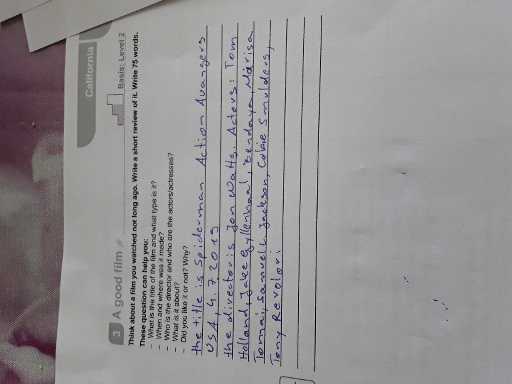 California
Basis: Level 2
3 A good film
Think about a film you watched not long ago. Write a short review of it. Write 75 words.
These question can help you:
– What is the title of the film and what type is it?
– When and where was it made?
– Who is the director and who are the actors/actresses?
– What is it about?
– Did you like it or not? Why?
the title is spiderman Action Avangers
USA, 4.7.2019
the director is Jon Watts. Actors: Tom
Holland, Jake Gyllenhaal, Zendaya, Marisa
Tomai, samuell Jackson, Cobie Smulders,
Tony Revolori